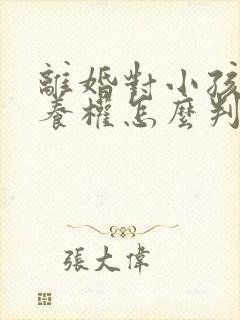 離婚對小孩
養權怎麼判
張大偉